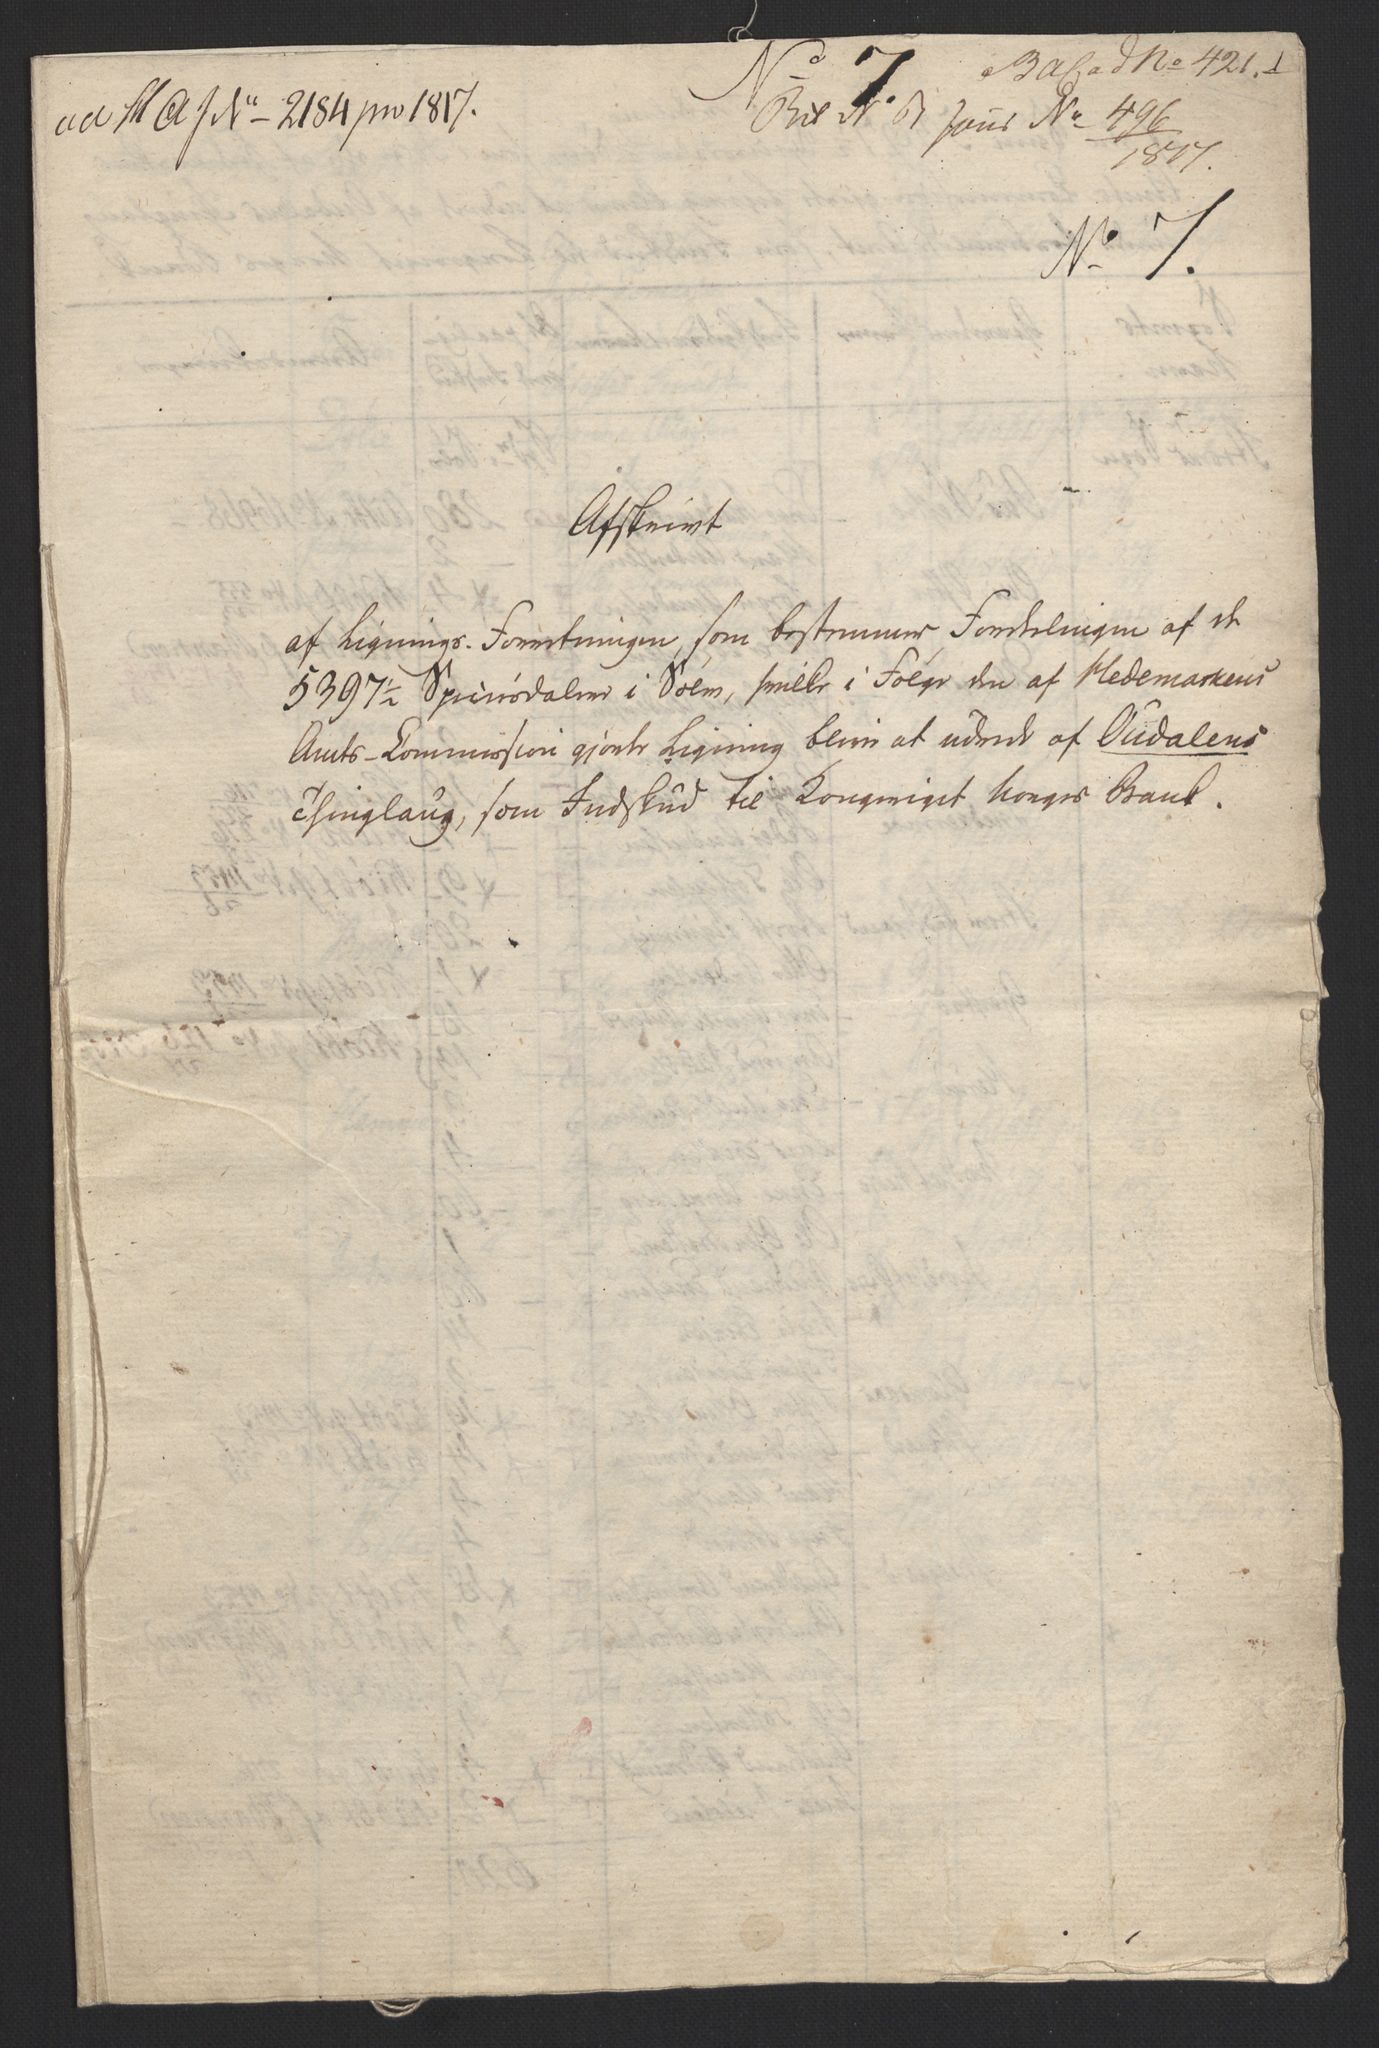 ad M A J N° 2184 pro 1817.
N° 7
ad N° 421.
Bil N° B Jour N° 496
1817.
N° 7.
Afskrivt
af Lignings-Forretningen, som bestemmer Fordelingen af de
5397½ Speciesdaler i Sölv, hvilke i Fölge den af Hedemarkens
Amts-Commission gjorte Ligning blive at udrede af Oudalens
Thinglaug, som Indskud til Kongeriget Norges Bank.